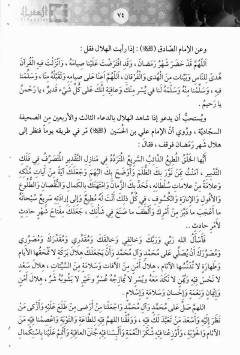 ٧٤
وعن الإمام الصادق (عليه السلام) : إذا رأيت الهلال فقل :
اللّهُمَّ قَدْ حَضَرَ شَهْرُ رَمَضانَ، وَقَدِ افْتَرَضْتَ عَلَيْنا صِيامَهُ، وَأَنْزَلْتَ فِيهِ القُرْآنَ
هُدىً لِلنّاسِ وَبَيِّناتٍ مِنَ الهُدى وَالفُرْقانِ، اللّهُمَّ أَعِنّا عَلى صِيامِهِ وَتَقَبَّلْهُ مِنّا،
وَسَلِّمْنا فِيهِ، وَسَلِّمْنا مِنْهُ وَسَلِّمْهُ لَنا فِي يُسْرٍ مِنْكَ وَعافِيَةٍ إِنَّكَ عَلى كُلِّ شَيْءٍ قَدِيرٌ، يا رَحْمنُ
يا رَحِيمُ.
ويستحب أن يدعو إذا شاهد الهلال بالدعاء الثالث والأربعين من الصحيفة
السجادية، وروي أن الإمام علي بن الحسين مر في طريقه يوماً فنظر إلى
هلال شهر رمضان فوقف، فقال :
أَيُّها الخَلْقُ المُطِيعُ الدّائِبُ السَّرِيعُ المُتَرَدِّدُ فِي مَنازِلِ التَّقْدِيرِ المُتَصَرِّفُ فِي فَلَكِ
التَّدْبِيرِ، آمَنْتُ بِمَنْ نَوَّرَ بِكَ الظُّلَمَ وَأَوْضَحَ بِكَ البُهَمَ وَجَعَلَكَ آيَةً مِنْ آياتِ مُلْكِهِ
وَعَلامَةً مِنْ عَلاماتِ سُلْطانِهِ، فَحَدَّ بِكَ الزَّمانَ وَامْتَهَنَكَ بِالكَمالِ وَالنُّقْصانِ وَالطُّلُوعِ
وَالأُفُولِ وَالإِنارَةِ وَالكُسُوفِ، فِي كُلِّ ذلِكَ أَنْتَ لَهُ مُطِيعٌ وَإِلى إِرادَتِهِ سَرِيعٌ سُبْحانَهُ
ما أَعْجَبَ ما دَبَّرَ مِنْ أَمْرِكَ وَأَلْطَفَ ما صَنَعَ فِي شَأْنِكَ، جَعَلَكَ مِفْتاحَ شَهْرٍ حادِثٍ
لأَمْرٍ حادِثٍ.
فَأَسْأَلُ اللهَ رَبِّي وَرَبَّكَ وَخالِقِي وَخالِقَكَ وَمُقَدِّرِي وَمُقَدِّرَكَ وَمُصَوِّرِي
وَمُصَوِّرَكَ أَنْ يُصَلِّيَ عَلى مُحَمَّدٍ وَآلِ مُحَمَّدٍ وَأَنْ يَجْعَلَكَ هِلالَ بَرَكَةٍ لا تَمْحَقُها الأَيّامُ
وَطَهارَةٍ لا تُدَنِّسُها الآثامُ، هِلالَ أَمْنٍ مِنَ الآفاتِ وَسَلامَةٍ مِنَ السَّيِّئاتِ، هِلالَ سَعْدٍ
لا نَحْسَ فِيهِ وَيُمْنٍ لا نَكَدَ مَعَهُ وَيُسْرٍ لا يُمازِجُهُ عُسْرٌ وَخَيْرٍ لا يَشُوبُهُ شَرٌّ، هِلالَ أَمْنٍ
وَإِيمانٍ وَنِعْمَةٍ وَإِحْسانٍ وَسَلامَةٍ وَإِسْلامٍ.
اللّهُمَّ صَلِّ عَلى مُحَمَّدٍ وَآلِ مُحَمَّدٍ وَاجْعَلْنا مِنْ أَرْضى مَنْ طَلَعَ عَلَيْهِ وَأَزْكى مَنْ
نَظَرَ إِلَيْهِ وَأَسْعَدَ مَنْ تَعَبَّدَ لَكَ فِيهِ،